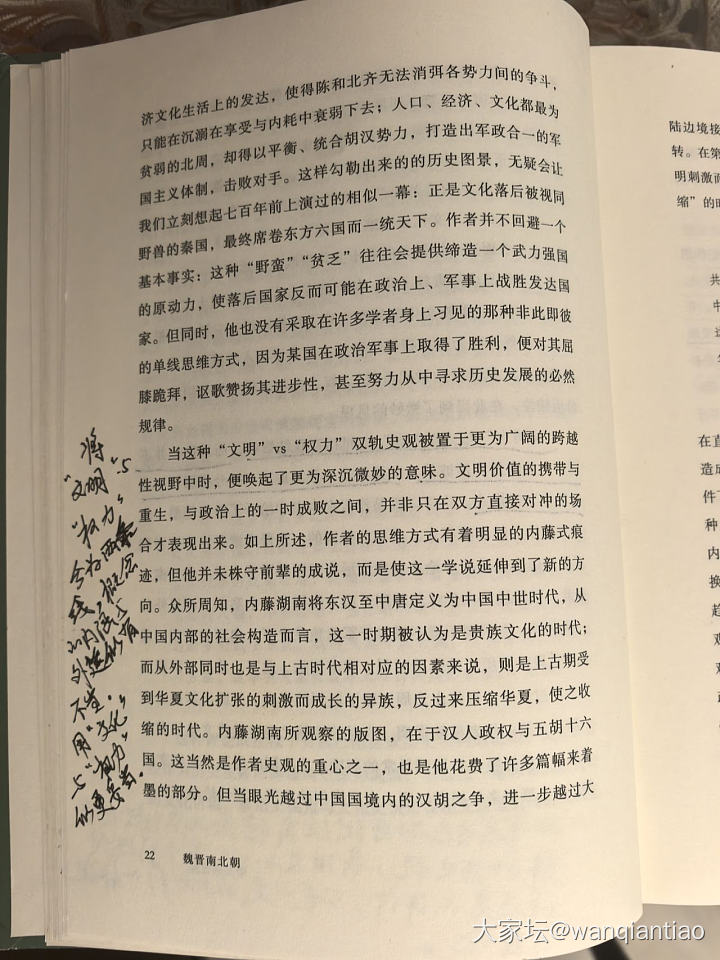 济文化生活上的发达，使得陈和北齐无法消弭各势力间的争斗，
只能在沉溺在享受与内耗中衰弱下去；人口、经济、文化都最为
贫弱的北周，却得以平衡、统合胡汉势力，打造出军政合一的军
国主义体制，击败对手。这样勾勒出来的的历史图景，无疑会让
我们立刻想起七百年前上演过的相似一幕：正是文化落后被视同
野兽的秦国，最终席卷东方六国而一统天下。作者并不回避一个
基本事实：这种“野蛮”“贫乏”往往会提供缔造一个武力强国
的原动力，使落后国家反而可能在政治上、军事上战胜发达国
家。但同时，他也没有采取在许多学者身上习见的那种非此即彼
的单线思维方式，因为某国在政治军事上取得了胜利，便对其屈
膝跪拜，讴歌赞扬其进步性，甚至努力从中寻求历史发展的必然
规律。
当这种“文明”vs“权力”双轨史观被置于更为广阔的跨越
性视野中时，便唤起了更为深沉微妙的意味。文明价值的携带与
重生，与政治上的一时成败之间，并非只在双方直接对冲的场
合才表现出来。如上所述，作者的思维方式有着明显的内藤式痕
迹，但他并未株守前辈的成说，而是使这一学说延伸到了新的方
向。众所周知，内藤湖南将东汉至中唐定义为中国中世时代，从
中国内部的社会构造而言，这一时期被认为是贵族文化的时代；
而从外部同时也是与上古时代相对应的因素来说，则是上古期受
到华夏文化扩张的刺激而成长的异族，反过来压缩华夏，使之收
缩的时代。内藤湖南所观察的版图，在于汉人政权与五胡十六
国。这当然是作者史观的重心之一，也是他花费了许多篇幅来着
墨的部分。但当眼光越过中国国境内的汉胡之争，进一步越过大
22 魏晋南北朝
将
“文明”与
“权力”
分为两条
线，概念
的内涵与
外延似有
不坐.
用“文化”
与“权力”
似更妥当.
陆边境接
转。在第
明刺激而
缩”的时
共
中
在直
造成
件下
种
内
换
大家坛@wanqiantiao